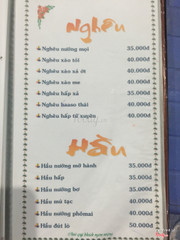 Nghêu
Nghêu nướng mọi 35.000đ
Nghêu xào tỏi 40.000đ
Nghêu xào sả ớt 40.000đ
Nghêu xào me 40.000đ
Nghêu hấp xả 35.000đ
Nghêu hấp thái 40.000đ
Nghêu hấp tứ xuyên 40.000đ
Hàu
Hàu nướng mỡ hành 35.000đ
Hàu hấp 35.000đ
Hàu nướng bơ 35.000đ
Hàu mù tạc 40.000đ
Hàu nướng phômai 40.000đ
Hàu đút lò 50.000đ